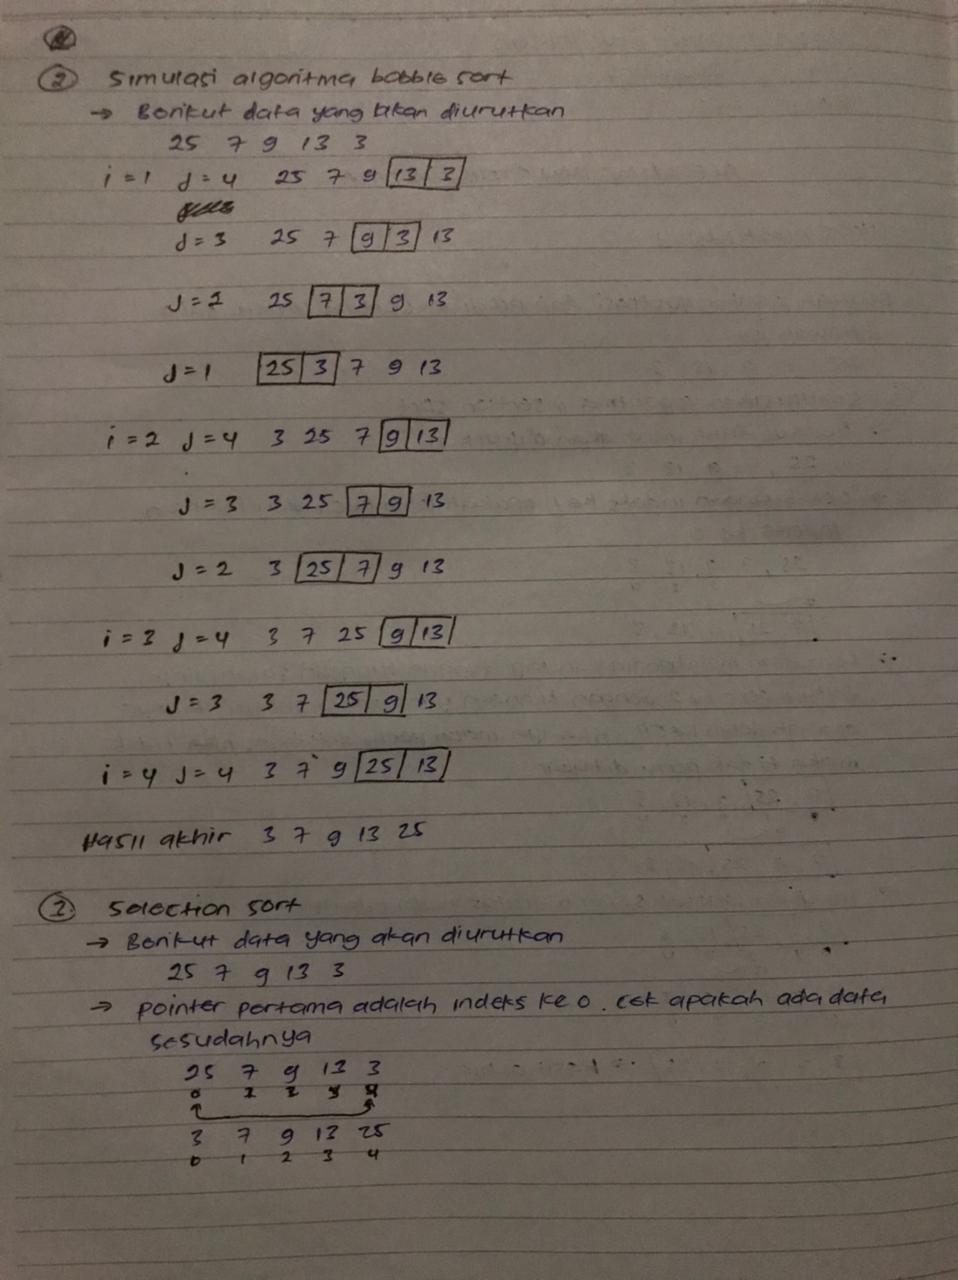 ② Simulasi algoritma bobble sort
→ Berikut data yang akan diurutkan
25 7 9 13 3
i = 1 J = 4 25 7 9 13 3
J = 3 25 7 9 3 13
J = 2 25 7 3 9 13
J = 1 25 3 7 9 13
i = 2 J = 4 3 25 7 9 13
J = 3 3 25 7 9 13
J = 2 3 25 7 9 13
i = 3 J = 4 3 7 25 9 13
J = 3 3 7 25 9 13
i = 4 J = 4 3 7 9 25 13
Hasil akhir 3 7 9 13 25
②. Selection sort
→ Berikut data yang akan diurutkan
25 7 9 13 3
→ pointer pertama adalah indeks ke 0. cek apakah ada data
sesudahnya
25 7 9 13 3
0 1 2 3 4
3 7 9 13 25
0 1 2 3 4